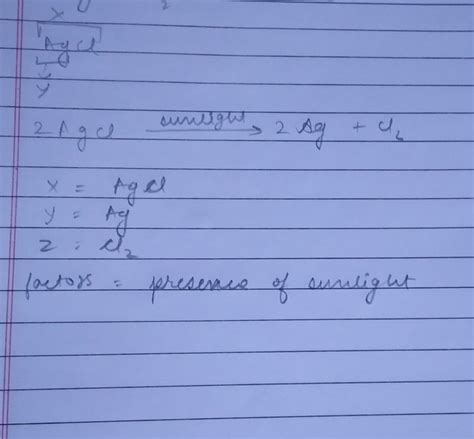 X
AgCl
Y
2AgCl sunlight → 2Ag + Cl₂
X = AgCl
Y = Ag
Z = Cl₂
factors = presence of sunlight